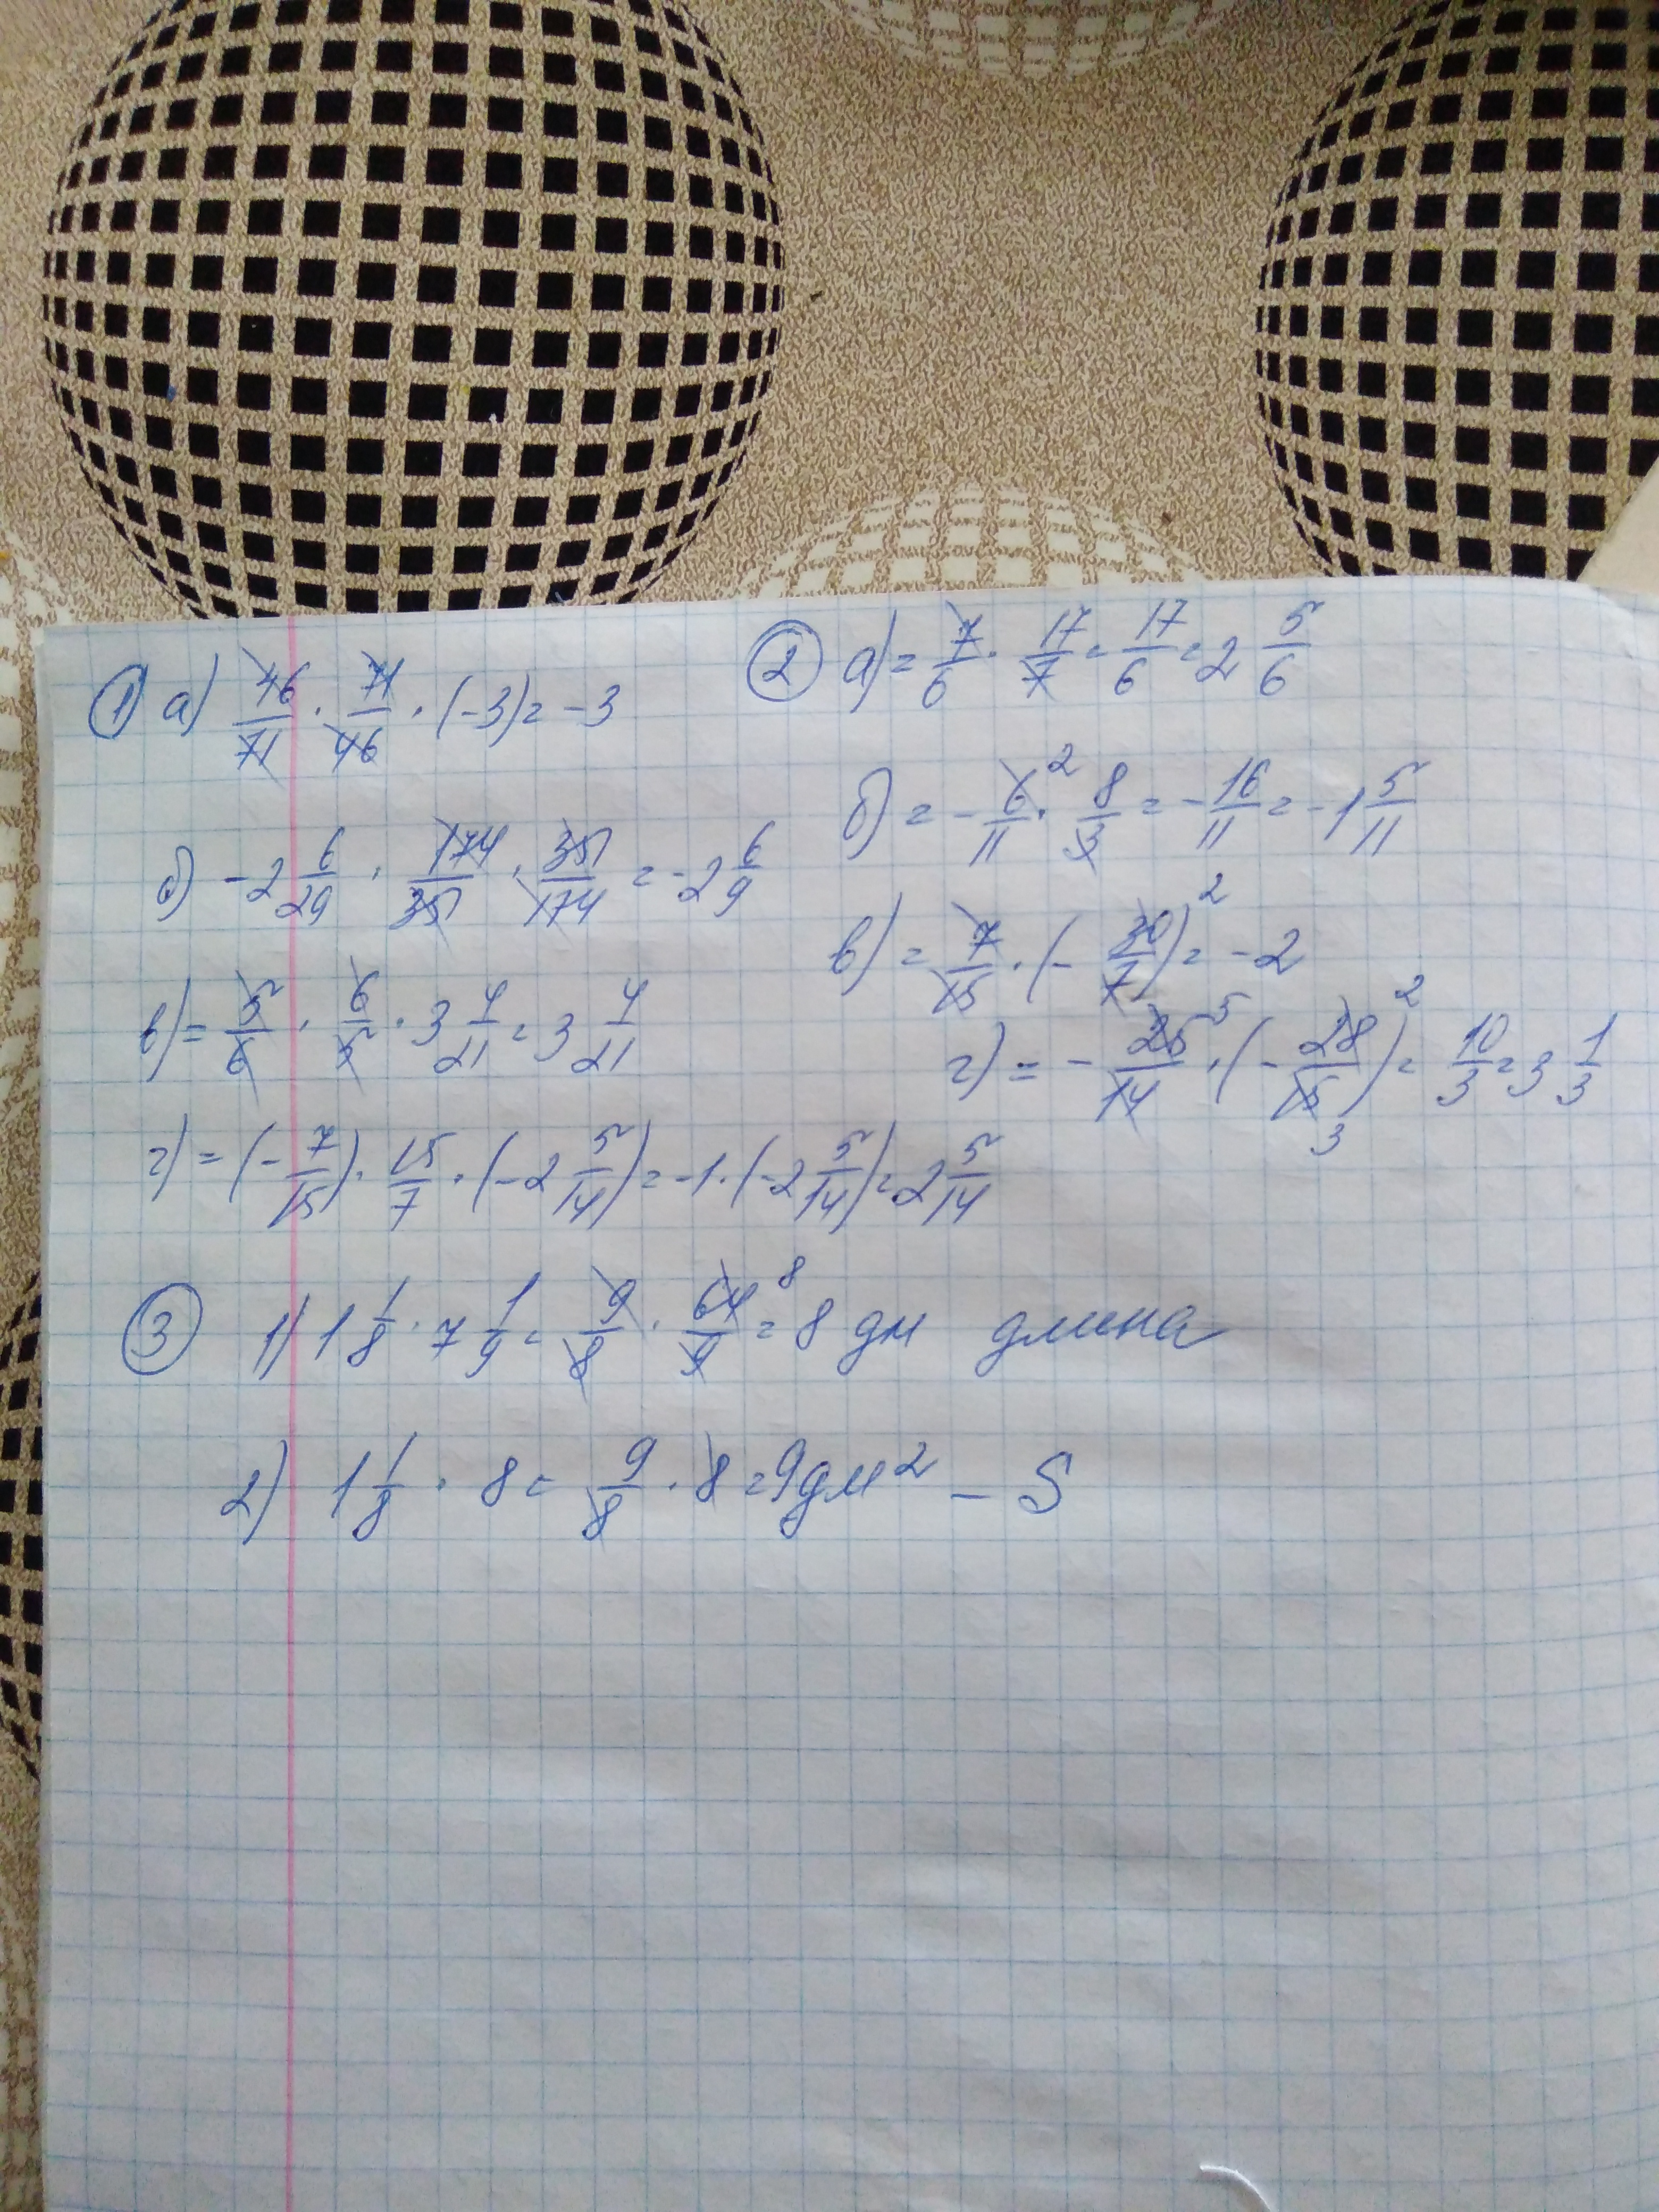 ① а) 46/71 · 71/46 · (-3) = -3
б) -2 6/29 · 174/351 · 351/174 = -2 6/9
в) = 5/6 · 6/5 · 3 4/21 = 3 4/21
г) = (- 7/15) · 15/7 · (-2 5/14) = -1 · (-2 5/14) = 2 5/14
② а) = 7/6 · 17/7 = 17/6 = 2 5/6
б) = - 6/11 · 8/3 = - 16/11 = -1 5/11
в) = 7/15 · (- 30/7) = -2
г) = - 25/14 · (- 28/15) = 10/3 = 3 1/3
③ 1) 1 1/8 · 7 1/9 = 9/8 · 64/9 = 8 дм длина
2) 1 1/8 · 8 = 9/8 · 8 = 9 дм² – S